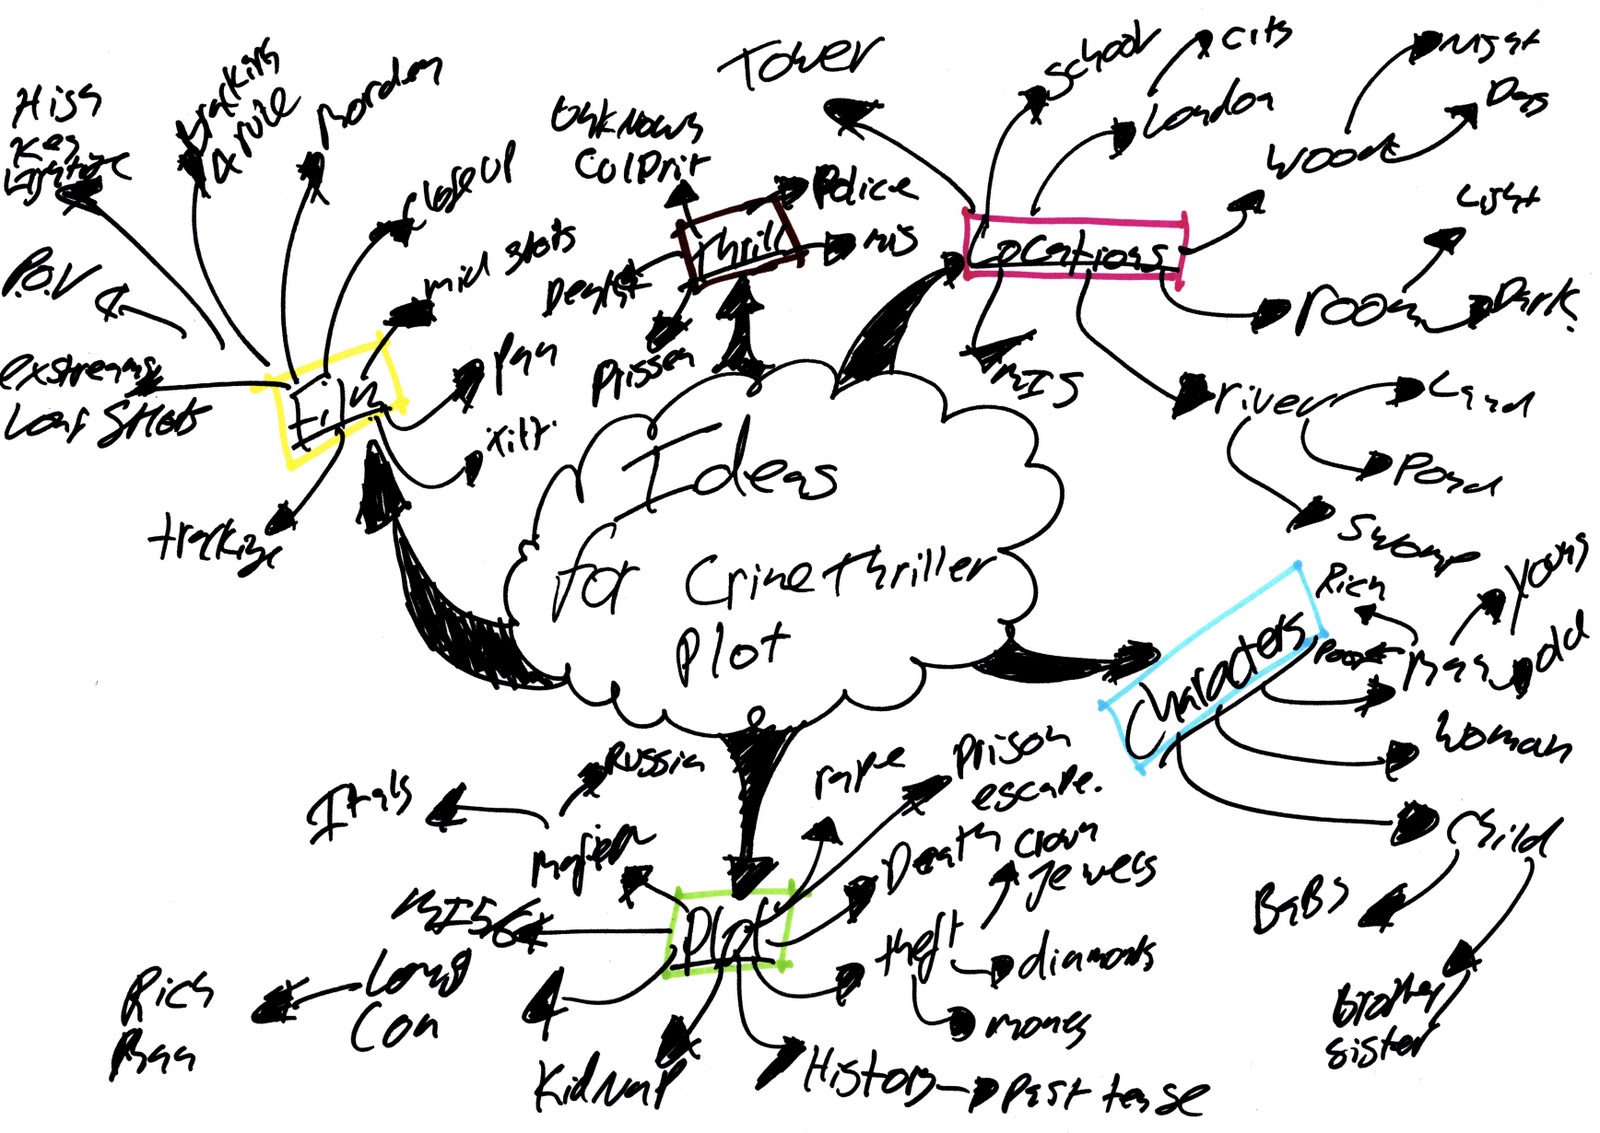 Tower
School
City
London
Night
Day
Woods
Light
Locations
room
Dark.
MI5
river
Land
Pond
Swomp
High
Key
tracking
P.O.V
Close up
mid shots
Pan
tilt.
Film
exstreams
Long Shots
Unknown
ColPrit
Police
Thrill
Death
Ideas
for Crime thriller
Plot
Characters
Rich
Poor
Man
Young
old
Woman
Child
BaBy
Brother
sister
Russia
Italy
Mafia
rape
Prison
escape.
Death
Crown
Jewels
theft
diamonds
money
Plot
MI56
Long
Con
Rich
Man
Kidnap
History
Past tense